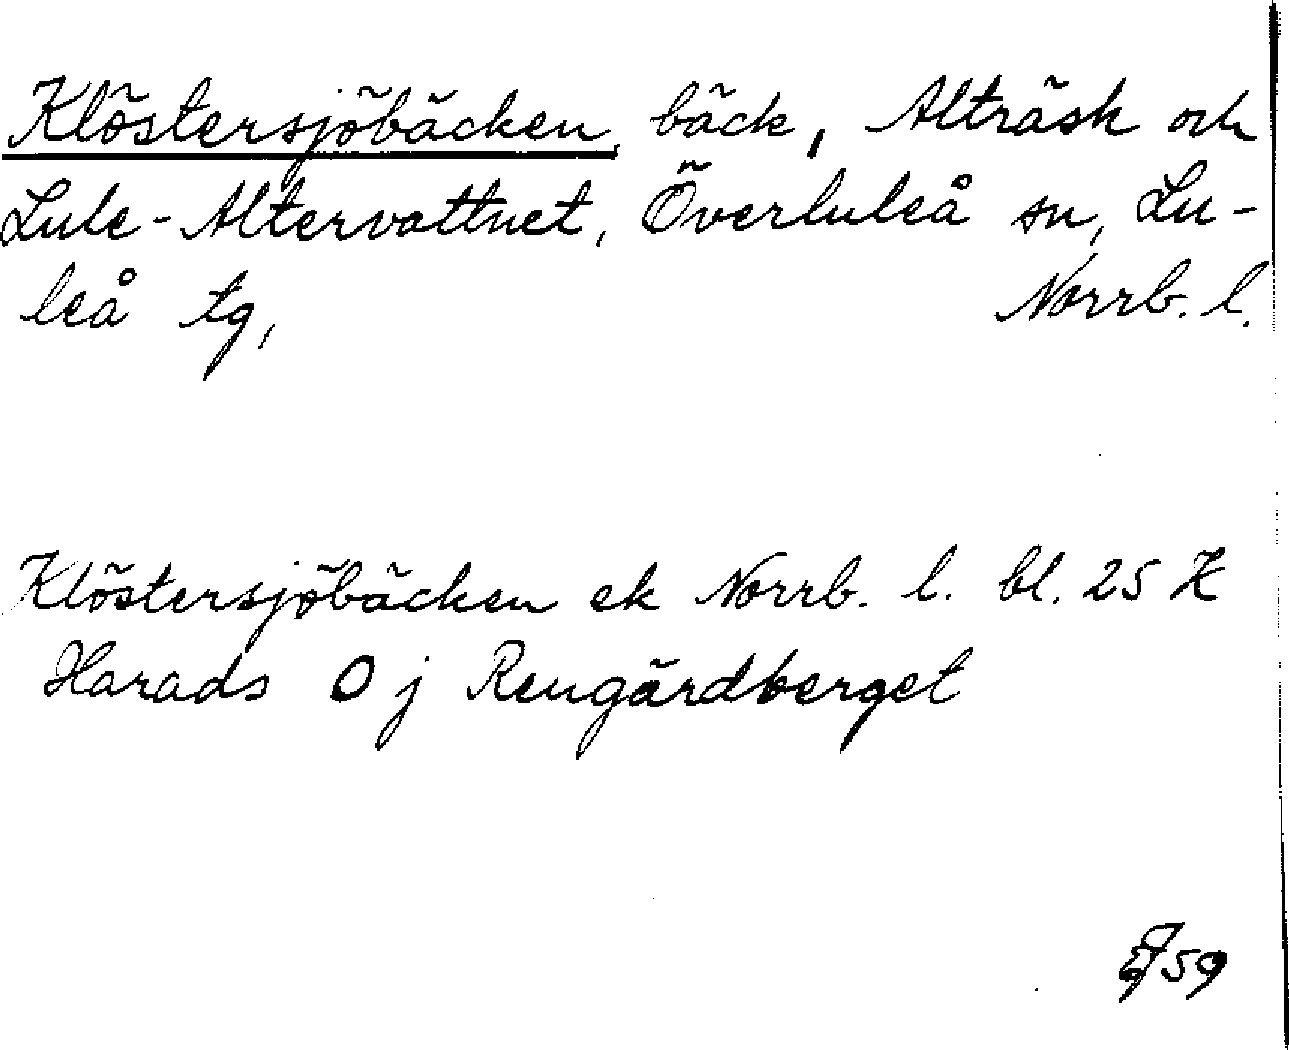 Klöstersjöbäcken, bäck, Alträsk och
Lule-Altervattnet, Överluleå sn, Lu-
leå tg, Norrb. l.
Klöstersjöbäcken ek Norrb. l. bl. 25 K
Harads 0 j Rengärdberget
59